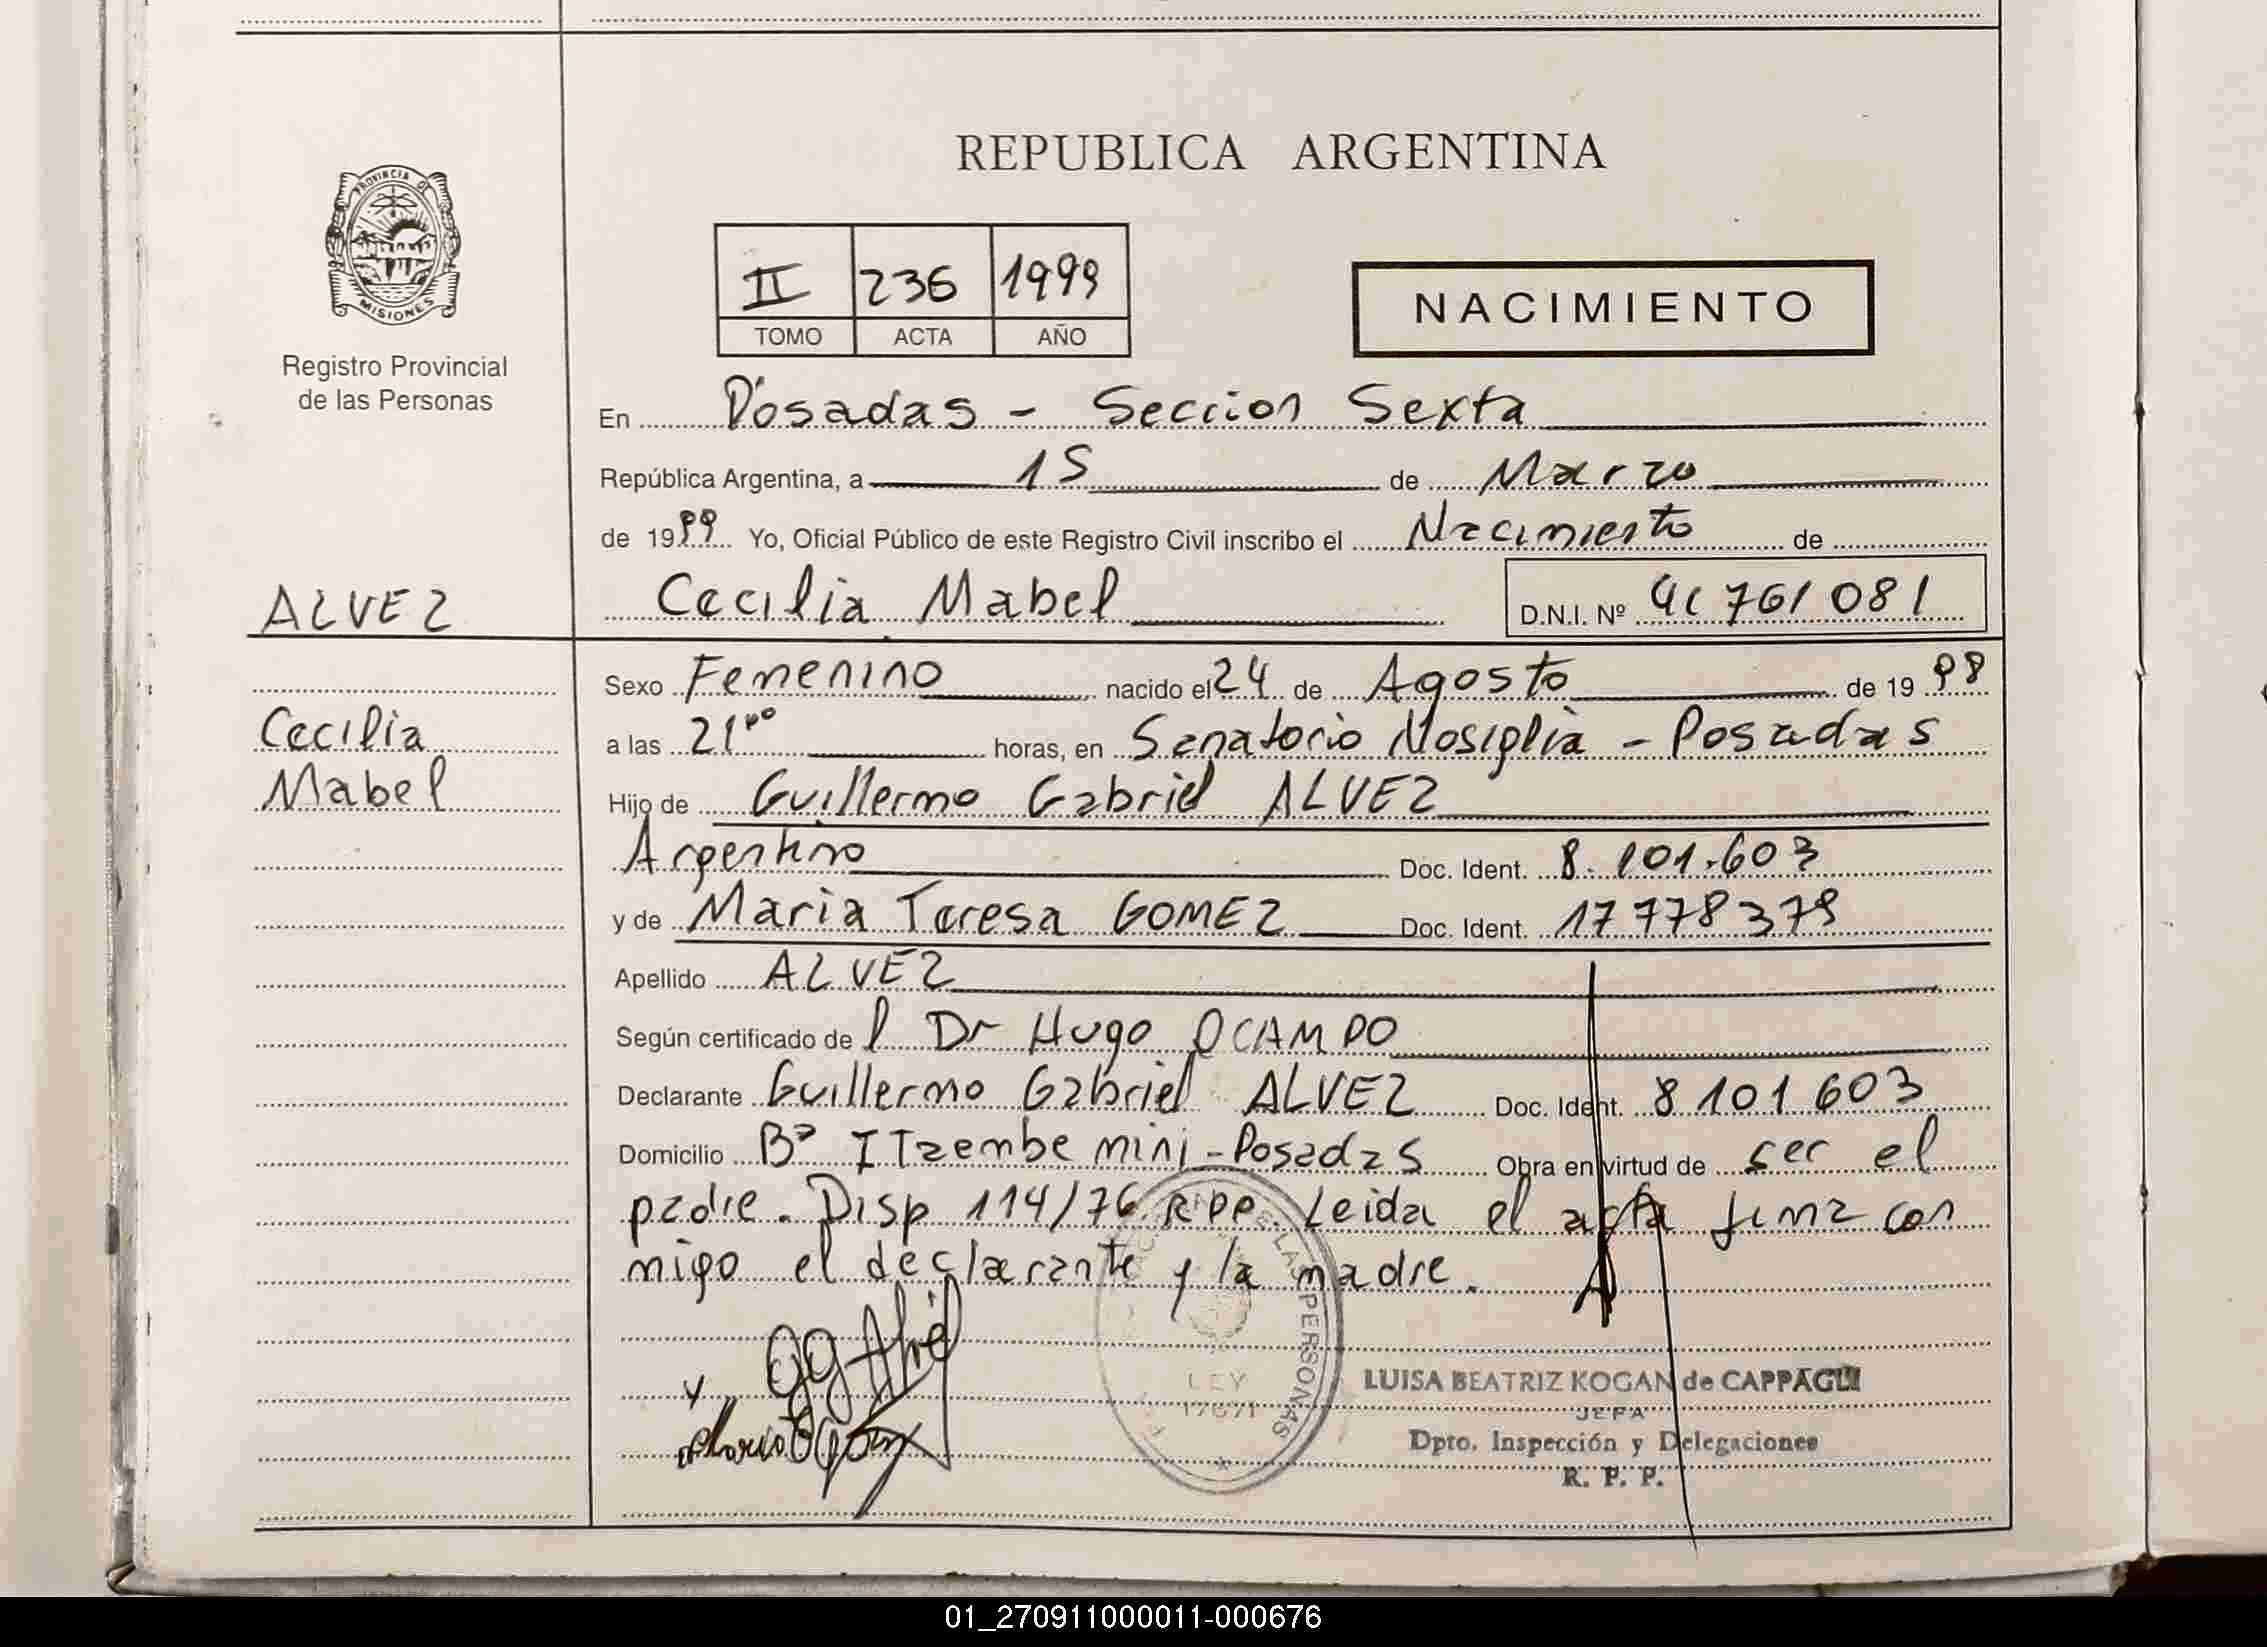 REPUBLICA ARGENTINA
PROVINCIA DE
MISIONES
Registro Provincial
de las Personas
II 236 1999
TOMO ACTA AÑO
NACIMIENTO
En Posadas - Seccion Sexta
República Argentina, a 15 de Marzo
de 1999 Yo, Oficial Público de este Registro Civil inscribo el Nacimiento de
ALVEZ
Cecilia Mabel D.N.I. Nº 41 761 081
Sexo Femenino nacido el 24 de Agosto de 19 98
Cecilia
a las 21 00 horas, en Sanatorio Nosiglia - Posadas
Mabel
Hijo de Guillermo Gabriel ALVEZ
Argentino Doc. Ident. 8.101.603
y de Maria Teresa GOMEZ Doc. Ident. 17778379
Apellido ALVEZ
Según certificado de l Dr Hugo OCAMPO
Declarante Guillermo Gabriel ALVEZ Doc. Ident. 8 101 603
Domicilio Bº ITaembe mini - Posadas Obra en virtud de ser el
padre. Disp 114/76 RPP. Leida el acta firma con
migo el declarante y la madre.
DE LAS PERSONAS
LEY
17671
LUISA BEATRIZ KOGAN de CAPPAGLI
JEFA
Dpto. Inspección y Delegaciones
R. P. P.
01_270911000011-000676